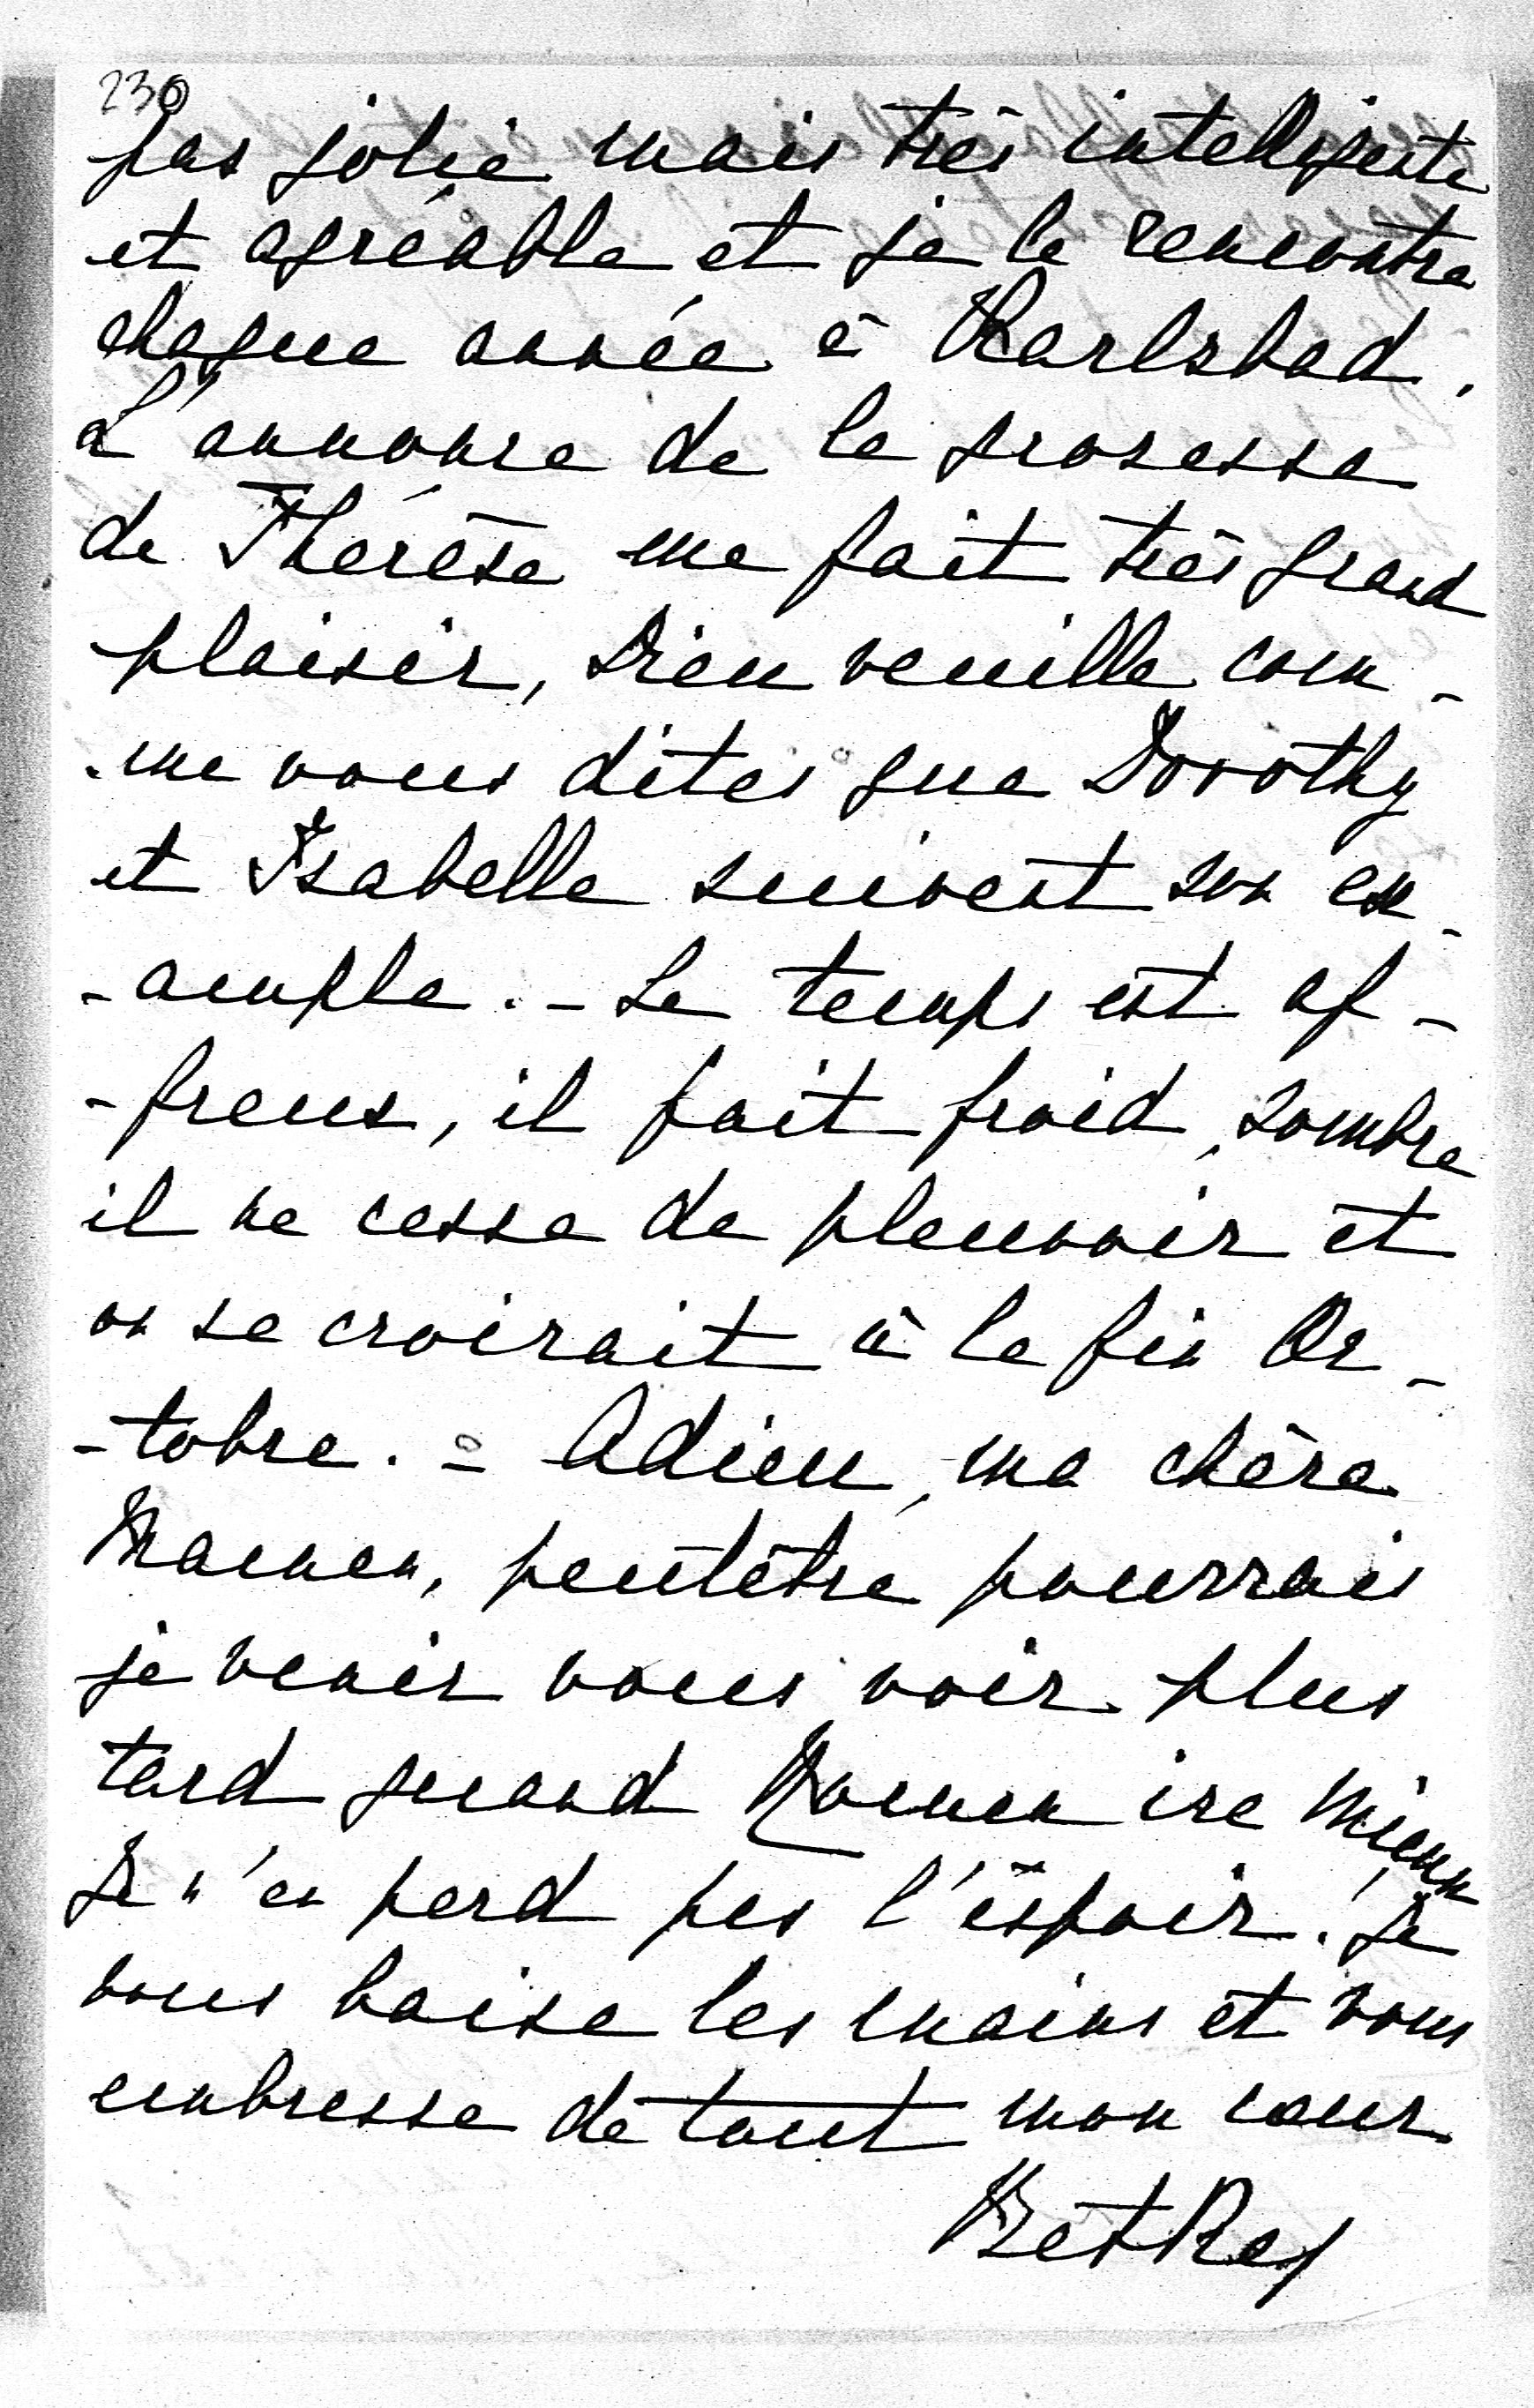 230
pas jolie mais très intelligente
et agréable et je la rencontre
chaque année à Karlsbad.
L'annonce de la grosesse
de Thérèse me fait très grand
plaisir, Dieu veuille com-
-me vous dites que Dorothy
et Isabelle suivent son ex-
-ample. - Le temps est af-
-freux, il fait froid, sombre
il ne cesse de pleuvoir et
on se croirait à la fin Oc-
-tobre. = Adieu, ma chère
Maman, peutêtre pourrais
je venir vous voir plus
tard quand Maman ira mieux
Je n'en perd pas l'éspoir. Je
vous baise les mains et vous
embrasse de tout mon cœur